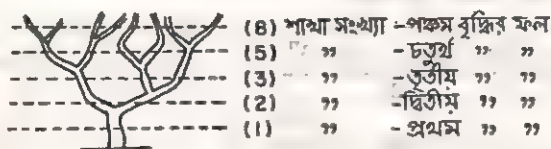 (8) শাখা সংখ্যা - পঞ্চম বৃদ্ধির ফল
(5) ,, - চতুর্থ ,, ,,
(3) ,, - তৃতীয় ,, ,,
(2) ,, - দ্বিতীয় ,, ,,
(1) ,, - প্রথম ,, ,,